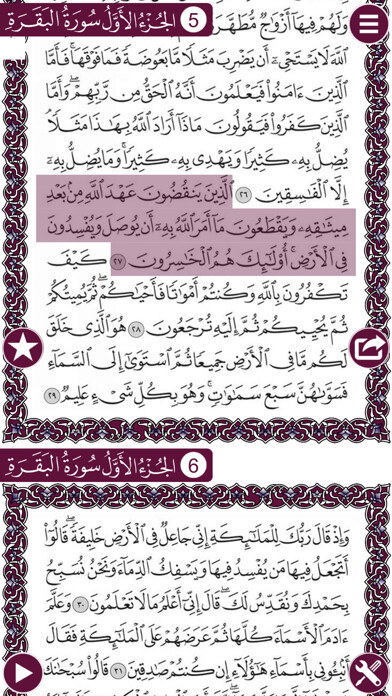 الجُزْءُ الأَوَّلُ سُورَةُ البَقَرَةِ 5
وَلَهُمْ فِيهَآ أَزْوَٰجٌ مُّطَهَّرَ
ٱللَّهَ لَا يَسْتَحْىِۦٓ أَن يَضْرِبَ مَثَلًا مَّا بَعُوضَةً فَمَا فَوْقَهَا ۚ فَأَمَّا
ٱلَّذِينَ ءَامَنُوا۟ فَيَعْلَمُونَ أَنَّهُ ٱلْحَقُّ مِن رَّبِّهِمْ ۖ وَأَمَّا
ٱلَّذِينَ كَفَرُوا۟ فَيَقُولُونَ مَاذَآ أَرَادَ ٱللَّهُ بِهَٰذَا مَثَلًا ۘ
يُضِلُّ بِهِۦ كَثِيرًا وَيَهْدِى بِهِۦ كَثِيرًا ۚ وَمَا يُضِلُّ بِهِۦٓ
إِلَّا ٱلْفَٰسِقِينَ ٢٦ ٱلَّذِينَ يَنقُضُونَ عَهْدَ ٱللَّهِ مِنۢ بَعْدِ
مِيثَٰقِهِۦ وَيَقْطَعُونَ مَآ أَمَرَ ٱللَّهُ بِهِۦٓ أَن يُوصَلَ وَيُفْسِدُونَ
فِى ٱلْأَرْضِ ۚ أُو۟لَٰٓئِكَ هُمُ ٱلْخَٰسِرُونَ ٢٧ كَيْفَ
تَكْفُرُونَ بِٱللَّهِ وَكُنتُمْ أَمْوَٰتًا فَأَحْيَٰكُمْ ۖ ثُمَّ يُمِيتُكُمْ
ثُمَّ يُحْيِيكُمْ ثُمَّ إِلَيْهِ تُرْجَعُونَ ٢٨ هُوَ ٱلَّذِى خَلَقَ
لَكُم مَّا فِى ٱلْأَرْضِ جَمِيعًا ثُمَّ ٱسْتَوَىٰٓ إِلَى ٱلسَّمَآءِ
فَسَوَّىٰهُنَّ سَبْعَ سَمَٰوَٰتٍ ۚ وَهُوَ بِكُلِّ شَىْءٍ عَلِيمٌ ٢٩
الجُزْءُ الأَوَّلُ سُورَةُ البَقَرَةِ 6
وَإِذْ قَالَ رَبُّكَ لِلْمَلَٰٓئِكَةِ إِنِّى جَاعِلٌ فِى ٱلْأَرْضِ خَلِيفَةً ۖ قَالُوٓا۟
أَتَجْعَلُ فِيهَا مَن يُفْسِدُ فِيهَا وَيَسْفِكُ ٱلدِّمَآءَ وَنَحْنُ نُسَبِّحُ
بِحَمْدِكَ وَنُقَدِّسُ لَكَ ۖ قَالَ إِنِّىٓ أَعْلَمُ مَا لَا تَعْلَمُونَ ٣٠ وَعَلَّمَ
ءَادَمَ ٱلْأَسْمَآءَ كُلَّهَا ثُمَّ عَرَضَهُمْ عَلَى ٱلْمَلَٰٓئِكَةِ فَقَالَ
أَنۢبِـُٔونِى بِأَسْمَآءِ هَٰٓؤُلَآءِ إِن كُنتُمْ صَٰدِقِينَ ٣١ قَالُوا۟ سُبْحَٰنَكَ